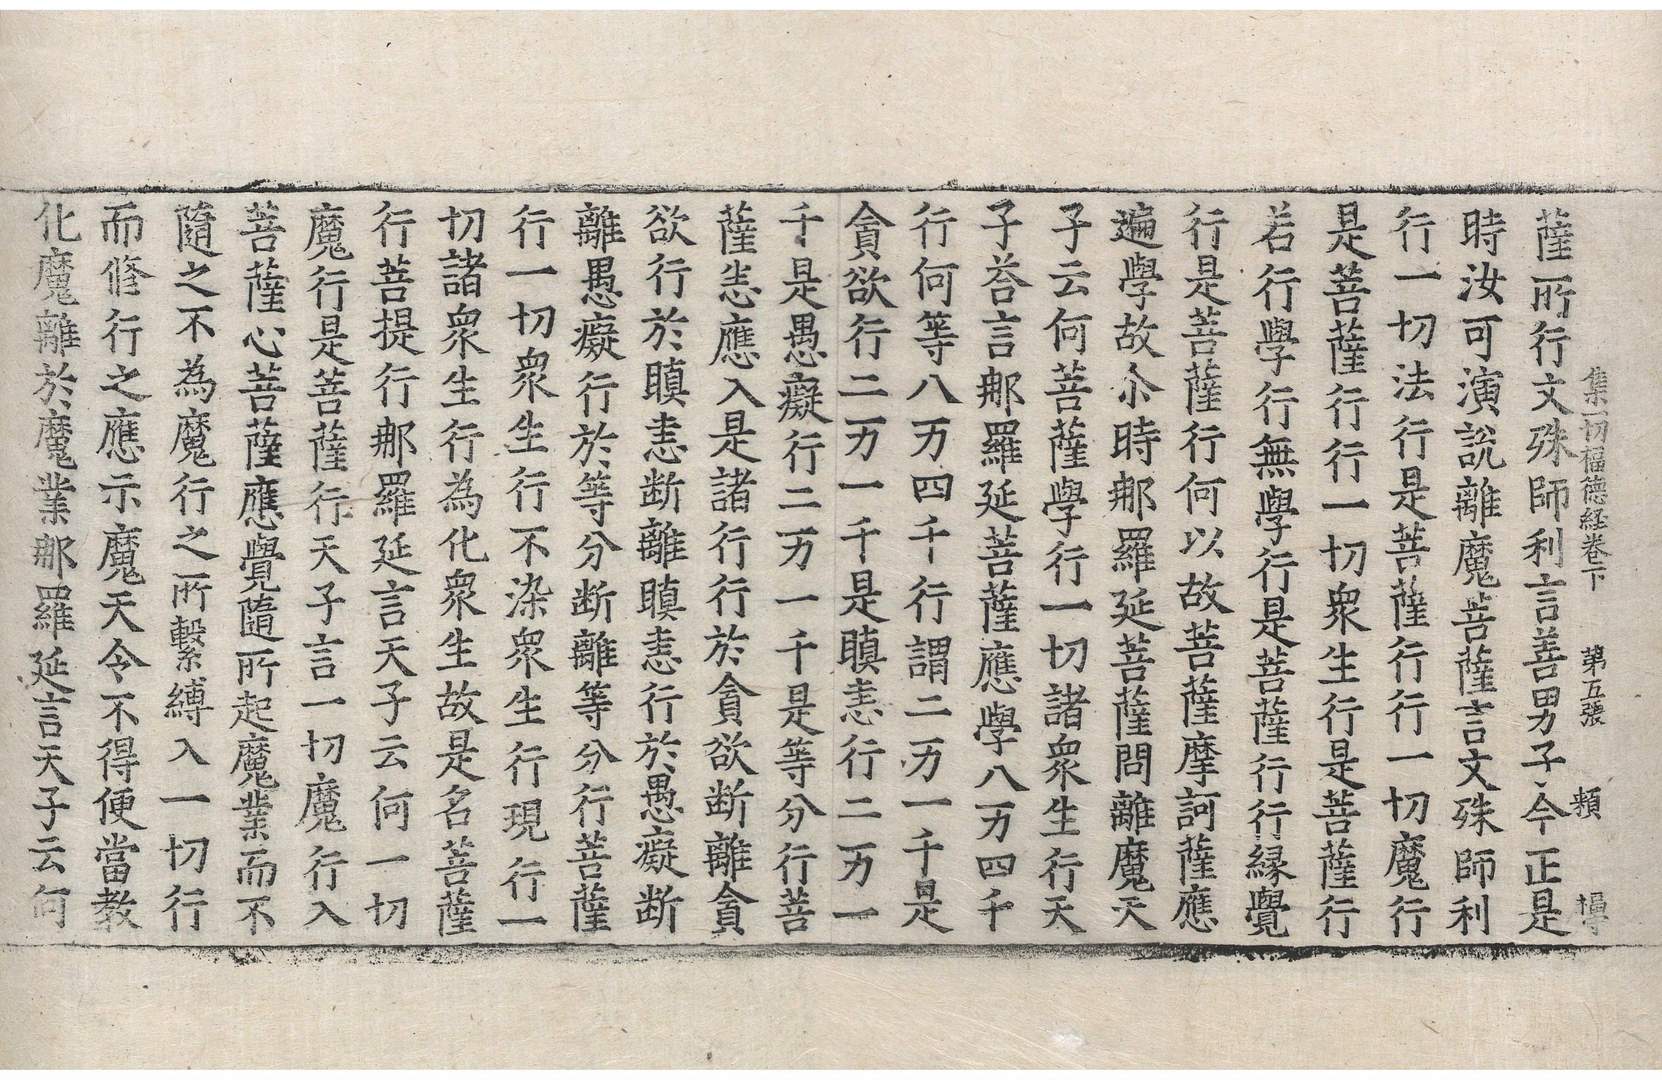 集一切福德経卷下 第五張 類
薩所行文殊師利言善男子今正是
時汝可演說離魔菩薩言文殊師利
行一切法行是菩薩行行一切魔行
是菩薩行行一切衆生行是菩薩行
若行學行無學行是菩薩行行縁覺
行是菩薩行何以故菩薩摩訶薩應
遍學故尒時那羅延菩薩問離魔天
子云何菩薩學行一切諸衆生行天
子荅言那羅延菩薩應學八万四千
行何等八万四千行謂二万一千是
貪欲行二万一千是瞋恚行二万一
千是愚癡行二万一千是等分行菩
薩恙應入是諸行行於貪欲断離貪
欲行於瞋恚断離瞋恚行於愚癡断
離愚癡行於等分断離等分行菩薩
行一切衆生行不染衆生行現行一
切諸衆生行為化衆生故是名菩薩
行菩提行那羅延言天子云何一切
魔行是菩薩行天子言一切魔行入
菩薩心菩薩應覺隨所起魔業而不
隨之不為魔行之所繫縛入一切行
而修行之應示魔天令不得便當教
化魔離於魔業那羅延言天子云何